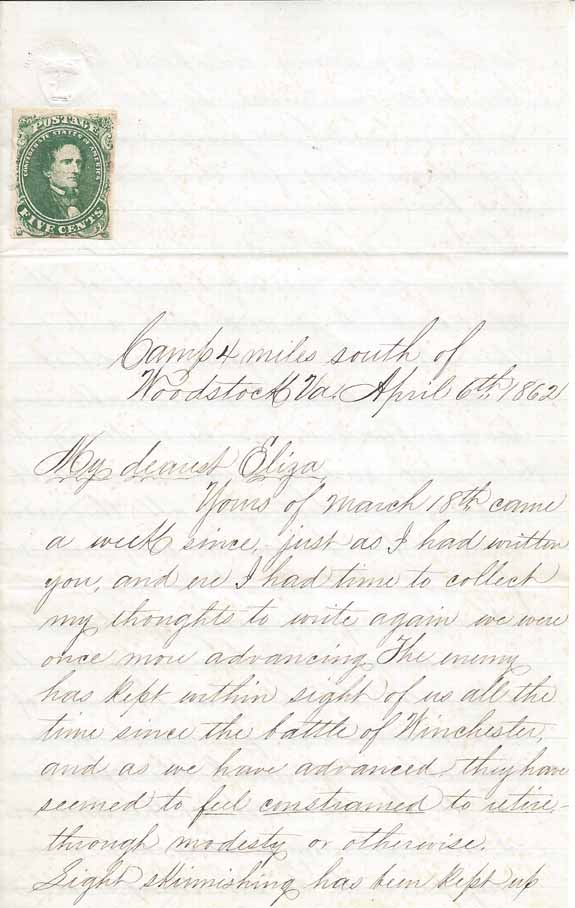 POSTAGE
CONFEDERATE STATES OF AMERICA
FIVE CENTS
Camp 4 miles south of
Woodstock Va. April 6th, 1862
My dearest Eliza,
Yours of March 18th came
a week since, just as I had written
you, and ere I had time to collect
my thoughts to write again we were
once more advancing. The enemy
has kept within sight of us all the
time since the battle of Winchester,
and as we have advanced they have
seemed to feel constrained to retire-
through modesty or otherwise.
Light skirmishing has been kept up